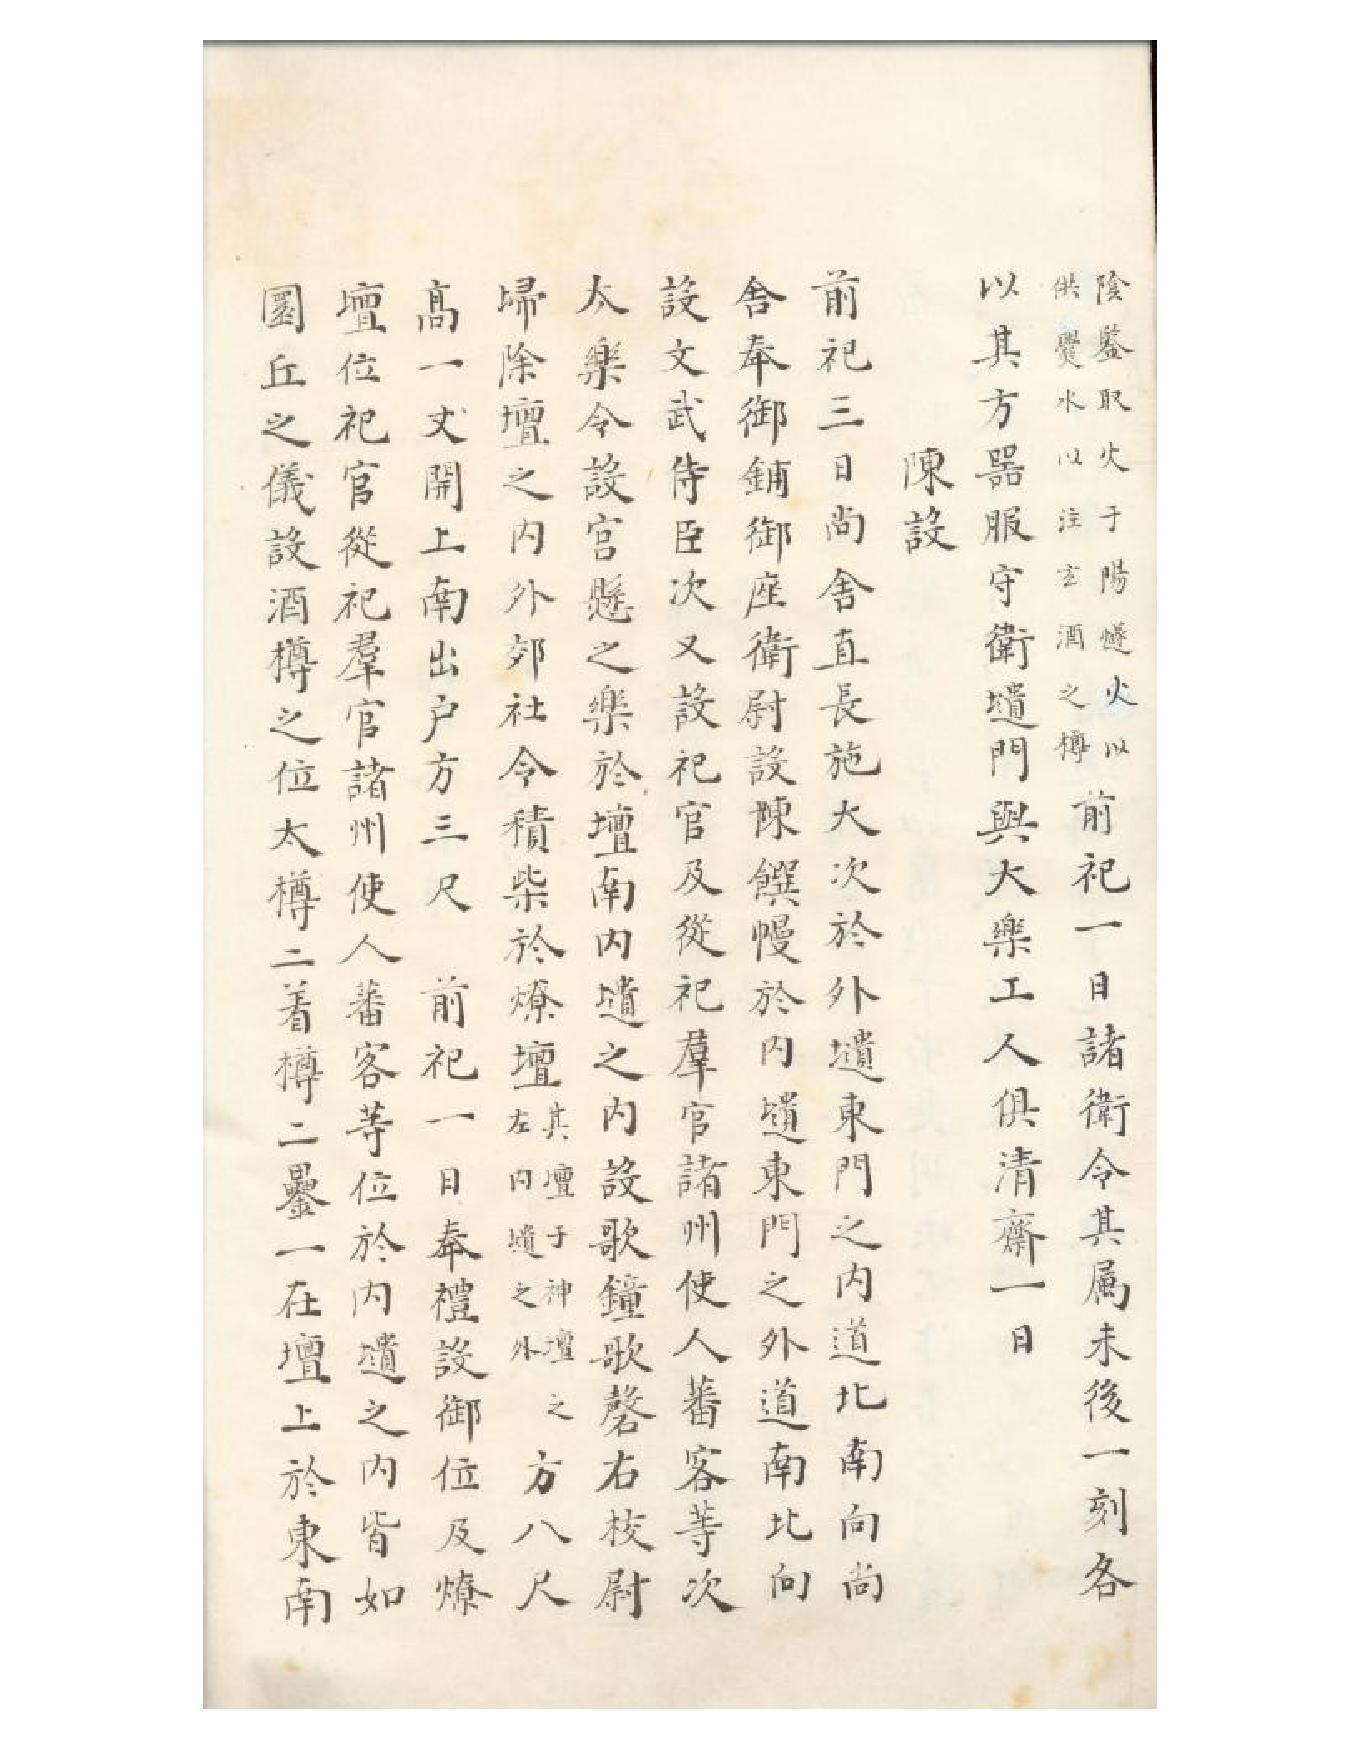 陰鑒取火于陽燧火以
供爨水以注玄酒之樽
前祀一日諸衛令其属未後一刻各
以其方噐服守衛壝門與大樂工人俱清齋一日
陳設
前祀三日尚舎直長施大次於外壝東門之内道北南向尚
舎奉御鋪御座衛尉設陳饌幔於内壝東門之外道南北向
設文武侍臣次又設祀官及從祀羣官諸州使人蕃客等次
太樂令設宫懸之樂於壇南内壝之内設歌鐘歌磬右校尉
埽除壇之内外郊社令積柴於燎壇
其壇于神壇之
左内壝之外
方八尺
髙一丈開上南出户方三尺 前祀一日奉禮設御位及燎
壇位祀官從祀羣官諸州使人蕃客等位於内壝之内皆如
圜丘之儀設酒樽之位太樽二着樽二罍一在壇上於東南